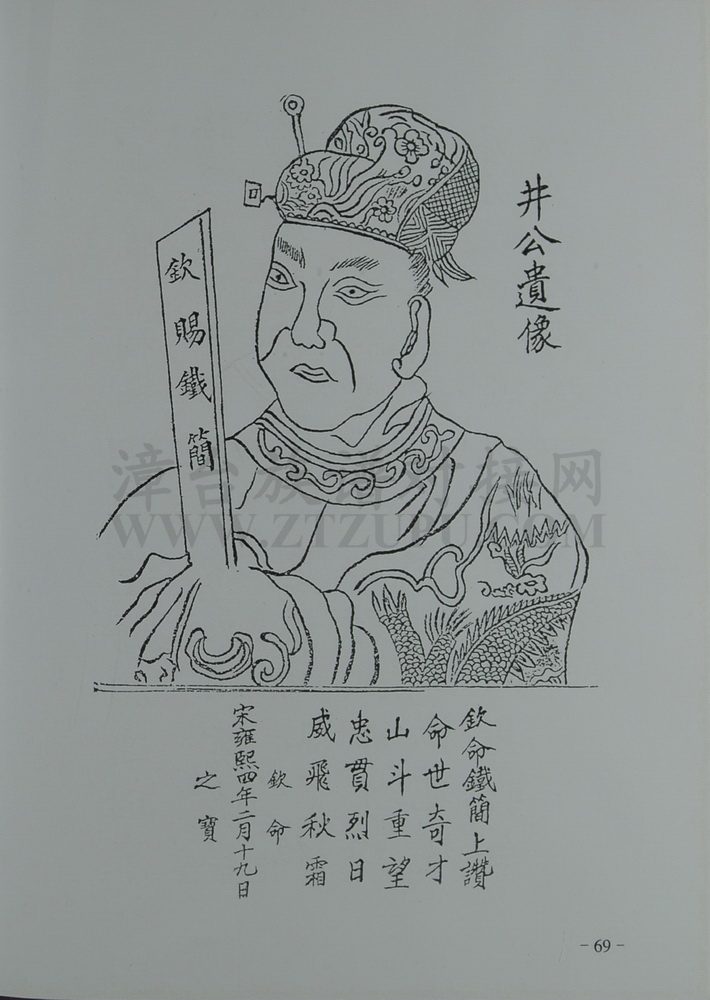 井公遺像
欽賜鐵簡
欽命鐵簡上讚
命世奇才
山斗重望
忠貫烈日
威飛秋霜
欽命
宋雍熙四年二月十九日
之寶
漳台族谱对接网
WWW.ZTZUPU.COM
- 69 -